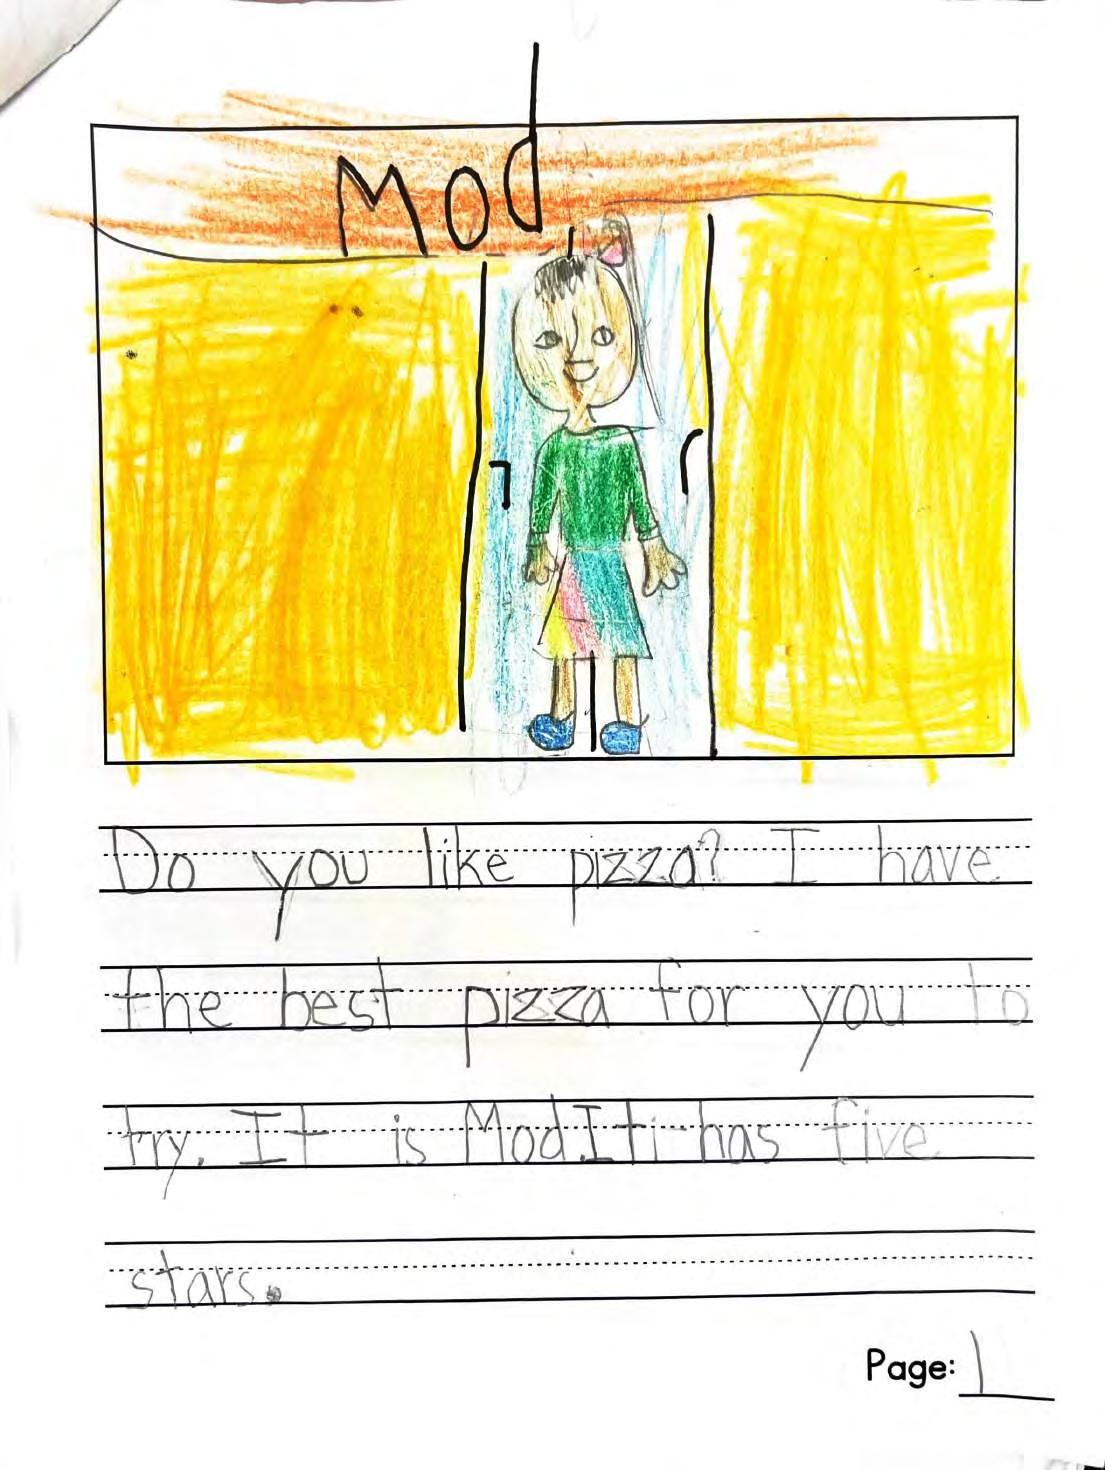 Mod
Do you like pizza? I have
the best pizza for you to
try. It is Mod. Iti has five
stars.
Page: 1